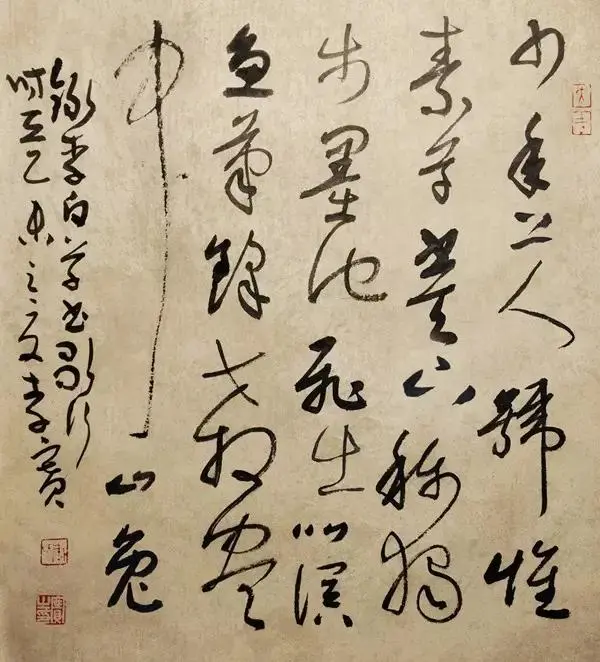 少年上人號懷
素草書天下称獨
步墨池飛出北溟
魚筆鋒殺盡
中山兔
錄李白草書歌行
時在乙未之夏李賓